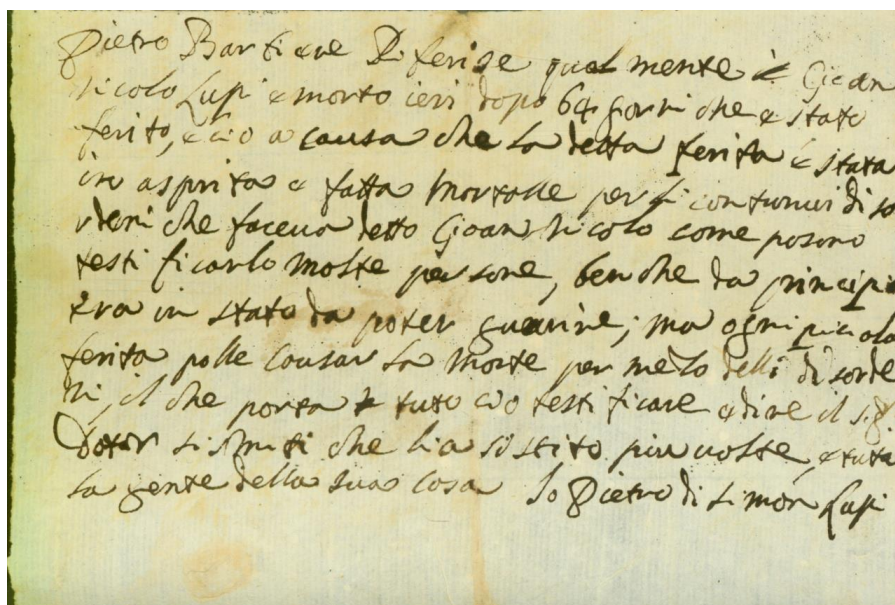 Pietro Barbiere Riferise qualmente è Gioan
Nicolo Lupi è morto ieri dopo 64 gorni che è stato
ferito, è ciò a causa che la detta ferita è stata
in asprita è fatta mortalle per li continuui diso
rdeni che faceua detto Gioan Nicolo come posono
testi ficarlo molte persone, ben che da principio
era in stato da poter guarire; ma ogni piciola
ferita polle causar la morte per mezo delli disorde
ni, il che portà tuto ciò testificare è dire il sig
Dotor che lià sistito più uolte, è tuta
la gente della sua casa Io Pietro di Simon Lupi